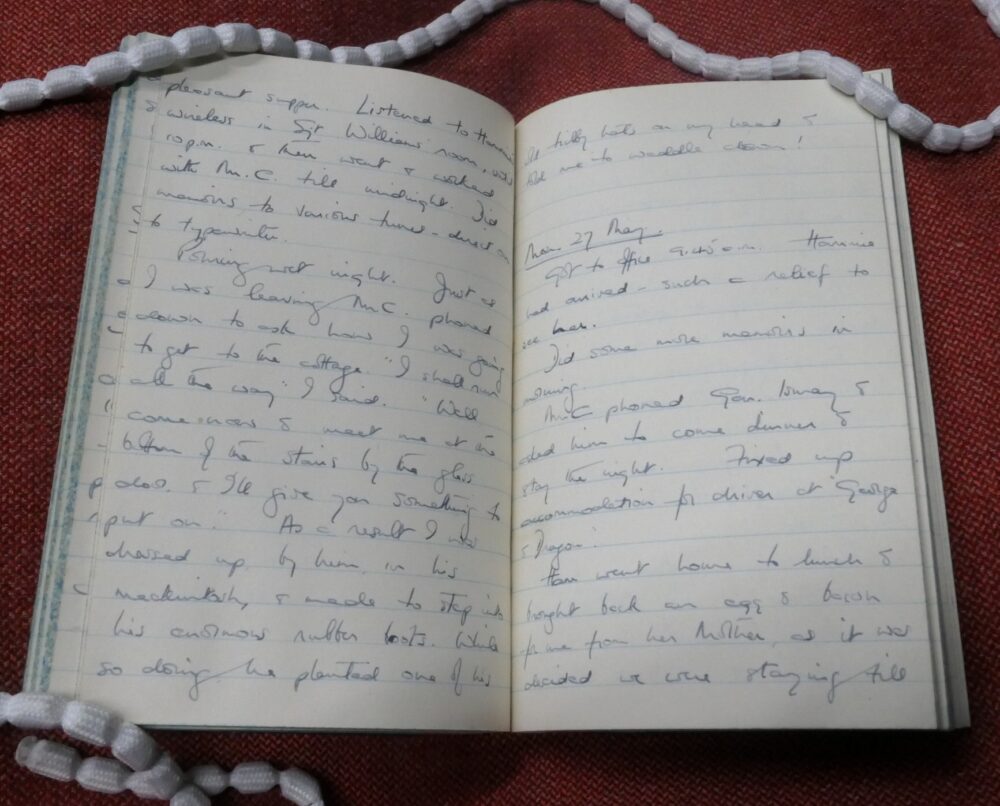 pleasant supper. Listened to Hammie's
wireless in Sgt Williams' room, until
10 p.m. & then went & worked
with Mr. C. till midnight. Did
memoirs to various tunes - direct on
to typewriter.
Pouring wet night. Just as
I was leaving Mr. C. phoned
down to ask how I was going
to get to the cottage. "I shall run
all the way" I said. "Well
come now & meet me at the
bottom of the stairs by the glass
door. & I'll give you something to
put on." As a result I was
dressed up, by him, in his
mackintosh, & made to step into
his enormous rubber boots. While
so doing he planted one of his
old trilby hats on my head &
told me to waddle down!
Mon. 27 May.
Got to office 9.45 a.m. Hammie
had arrived - such a relief to
see her.
Did some more memoirs in
morning.
Mr C phoned Gen. Ismay &
asked him to come dinner &
stay the night. Fixed up
accommodation for driver at 'George
& Dragon'.
Ham went home to lunch &
brought back an egg & bacon
for me from her Mother, as it was
decided we were staying till